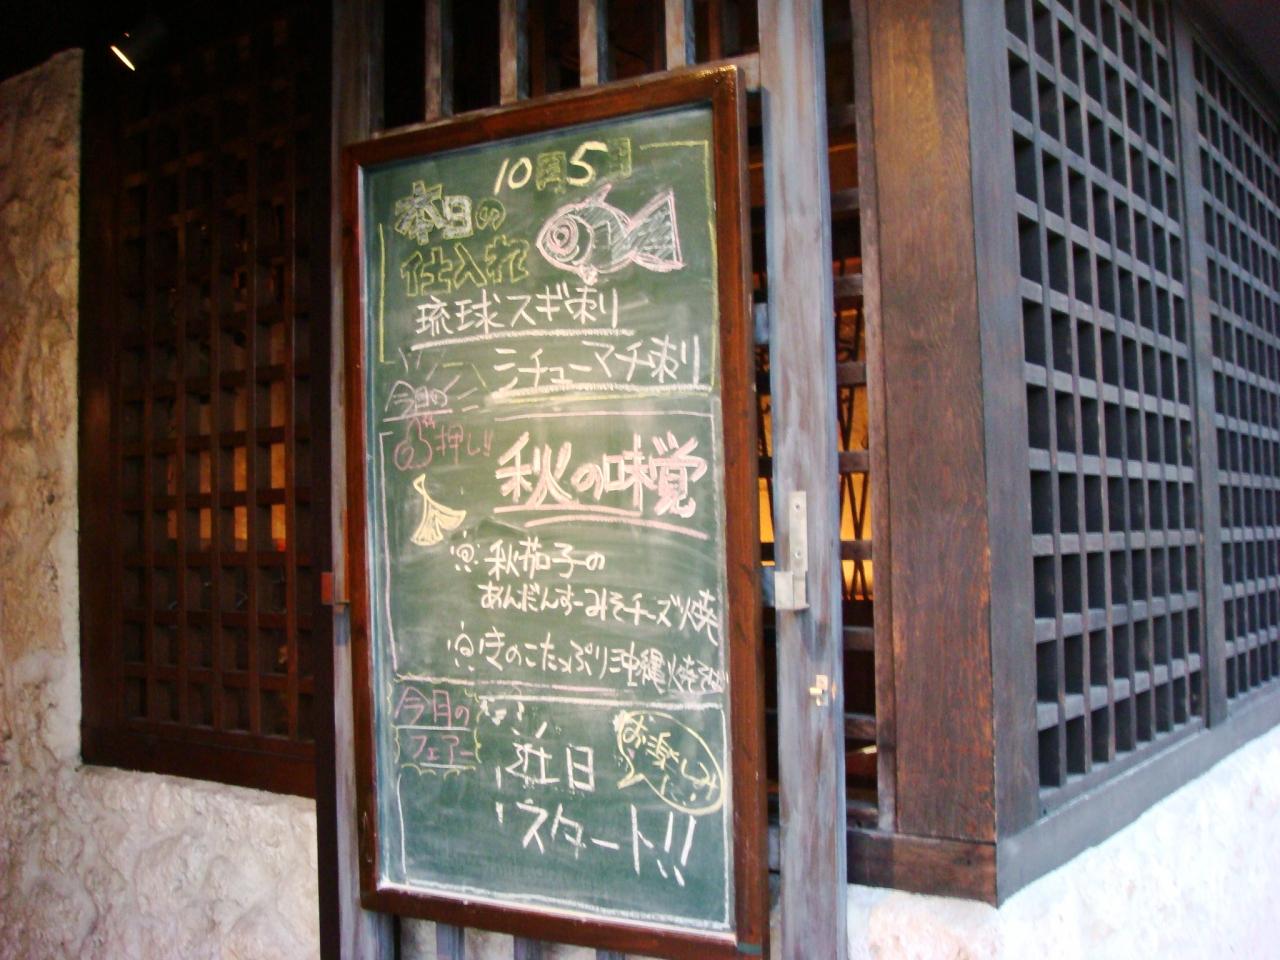 10月5日
本日の
仕入れ
琉球スギ刺
シチューマチ刺
今月の
押し!!
秋の味覚
秋茄子の
あんだんすーみそチーズ焼
きのこたっぷり沖縄焼そば
今月の
フェアー
近日
スタート!!
お楽しみ
に